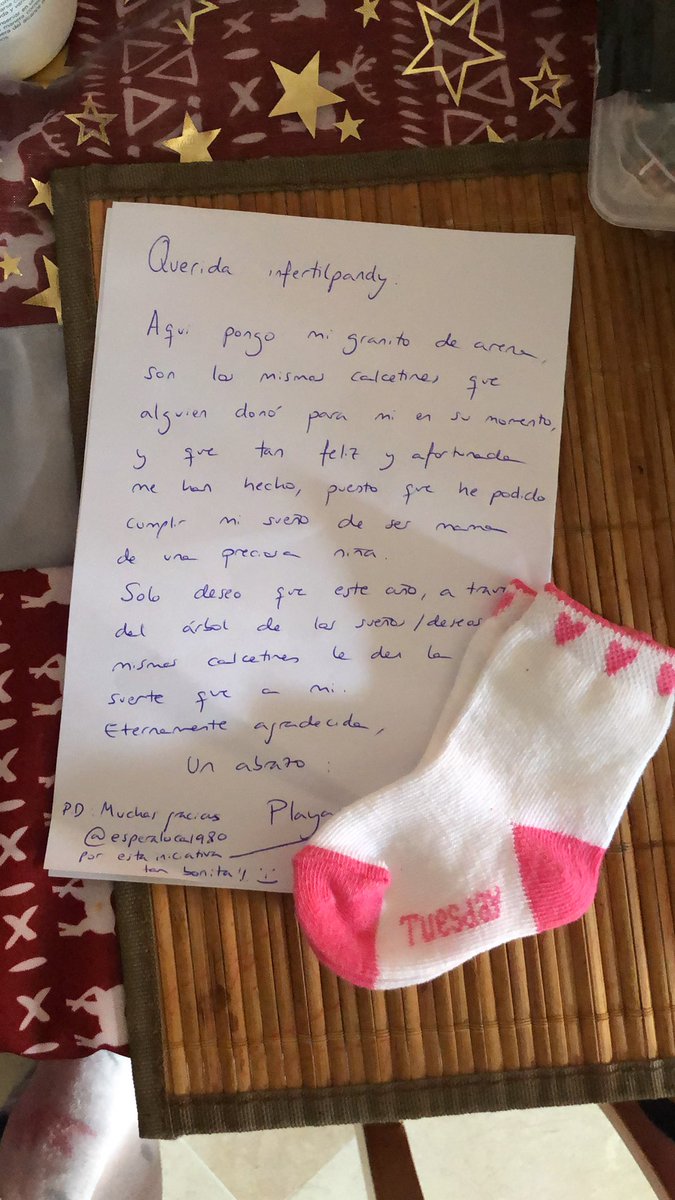 Querida infertilpandy.
Aqui pongo mi granito de arena,
son los mismos calcetines que
alguien donó para mi en su momento,
y que tan feliz y afortunada
me han hecho, puesto que he podido
cumplir mi sueño de ser mama
de una preciosa niña.
Solo deseo que este año, a trav
del árbol de los sueños/deseos
mismos calcetines le den la
suerte que a mi.
Eternamente agradecida,
Un abrazo:
Playa
PD: Muchas gracias
@esperaloca1980
por esta iniciativa
tan bonita!! :)
Tuesday